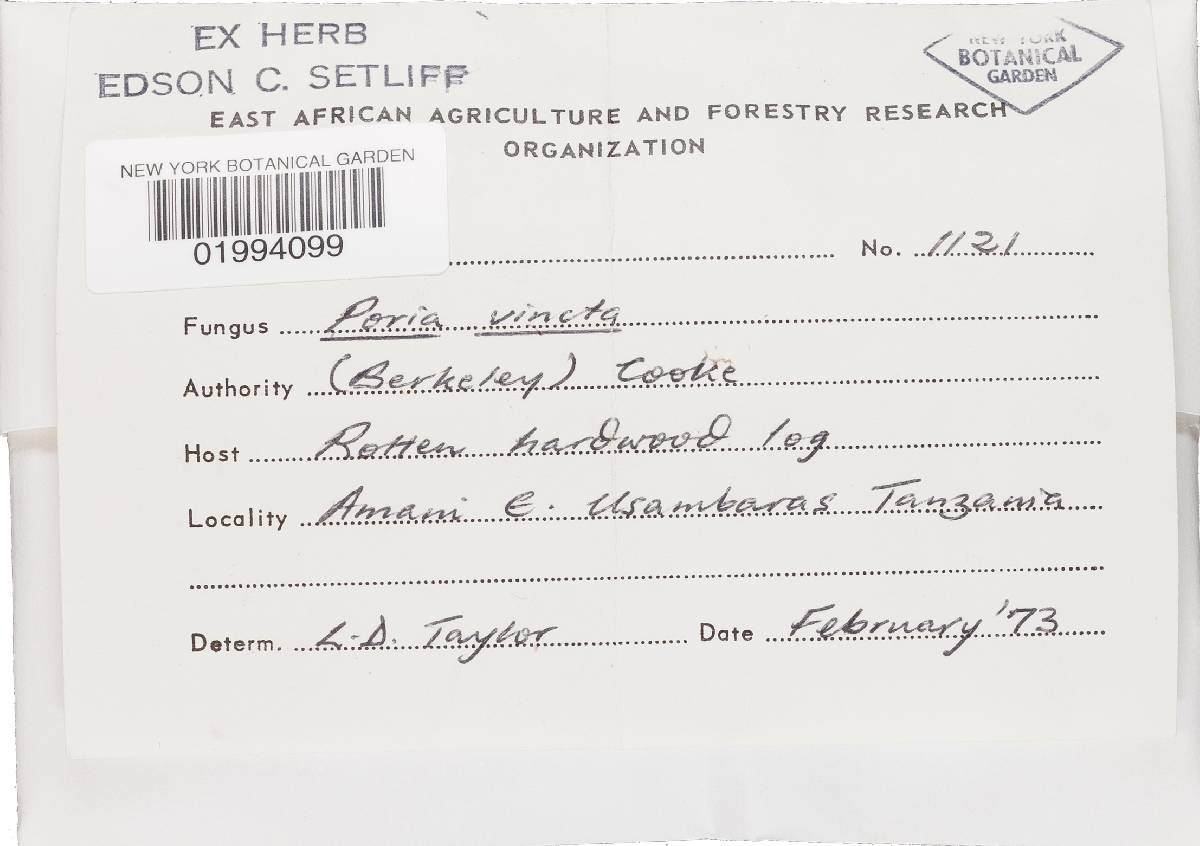 EX HERB
EDSON C. SETLIFF
NEW YORK
BOTANICAL
GARDEN
EAST AFRICAN AGRICULTURE AND FORESTRY RESEARCH
ORGANIZATION
NEW YORK BOTANICAL GARDEN
01994099
No. 1121
Fungus Poria vincta
Authority (Berkeley) Cooke
Host Rotten hardwood log
Locality Amani E. Usambaras Tanzania
Determ. L.D. Taylor Date February '73